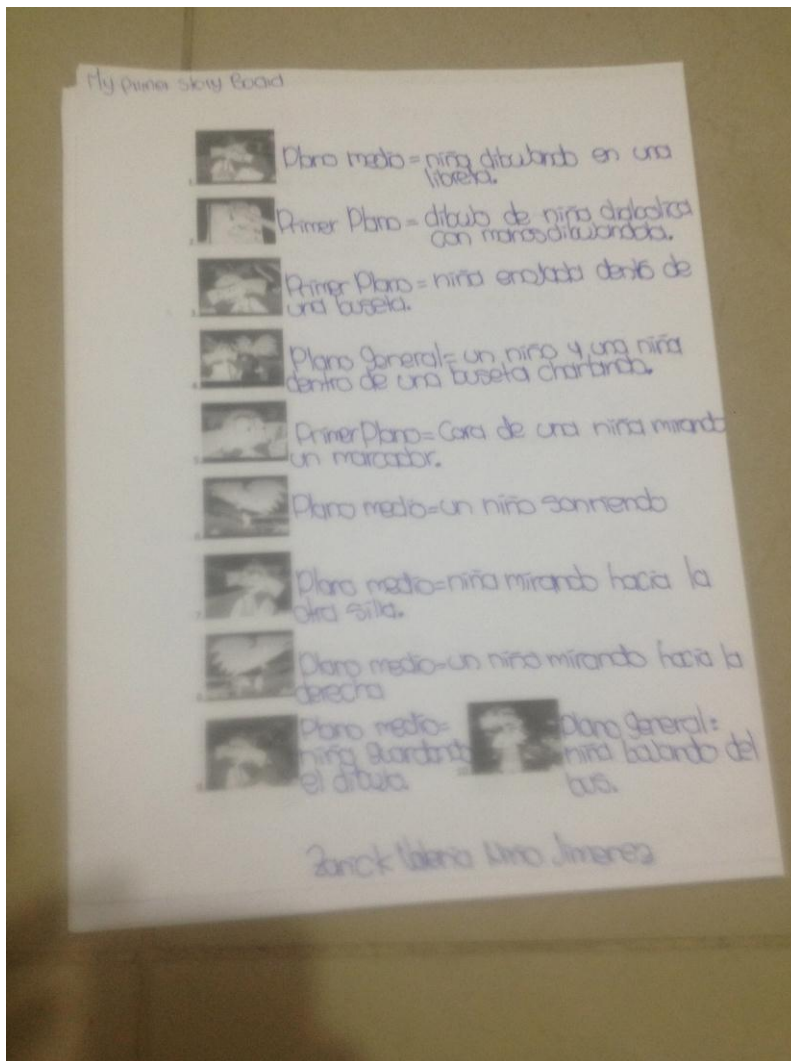 My primer Story Board
1. Plano medio = niña dibujando en una
libreta.
2. Primer Plano = dibujo de niña diabolica
con manos dibujandola.
3. Primer Plano = niña enojada dentro de
una buseta.
4. Plano General = un niño y una niña
dentro de una buseta charlando.
5. Primer Plano = Cara de una niña mirando
un marcador.
6. Plano medio = un niño sonriendo
7. Plano medio = niña mirando hacia la
otra silla.
8. Plano medio = un niño mirando hacia la
derecha
9. Plano medio =
niña guardando
el dibujo.
Plano General =
niña bajando del
bus.
Zarick Valeria Nino Jimenez